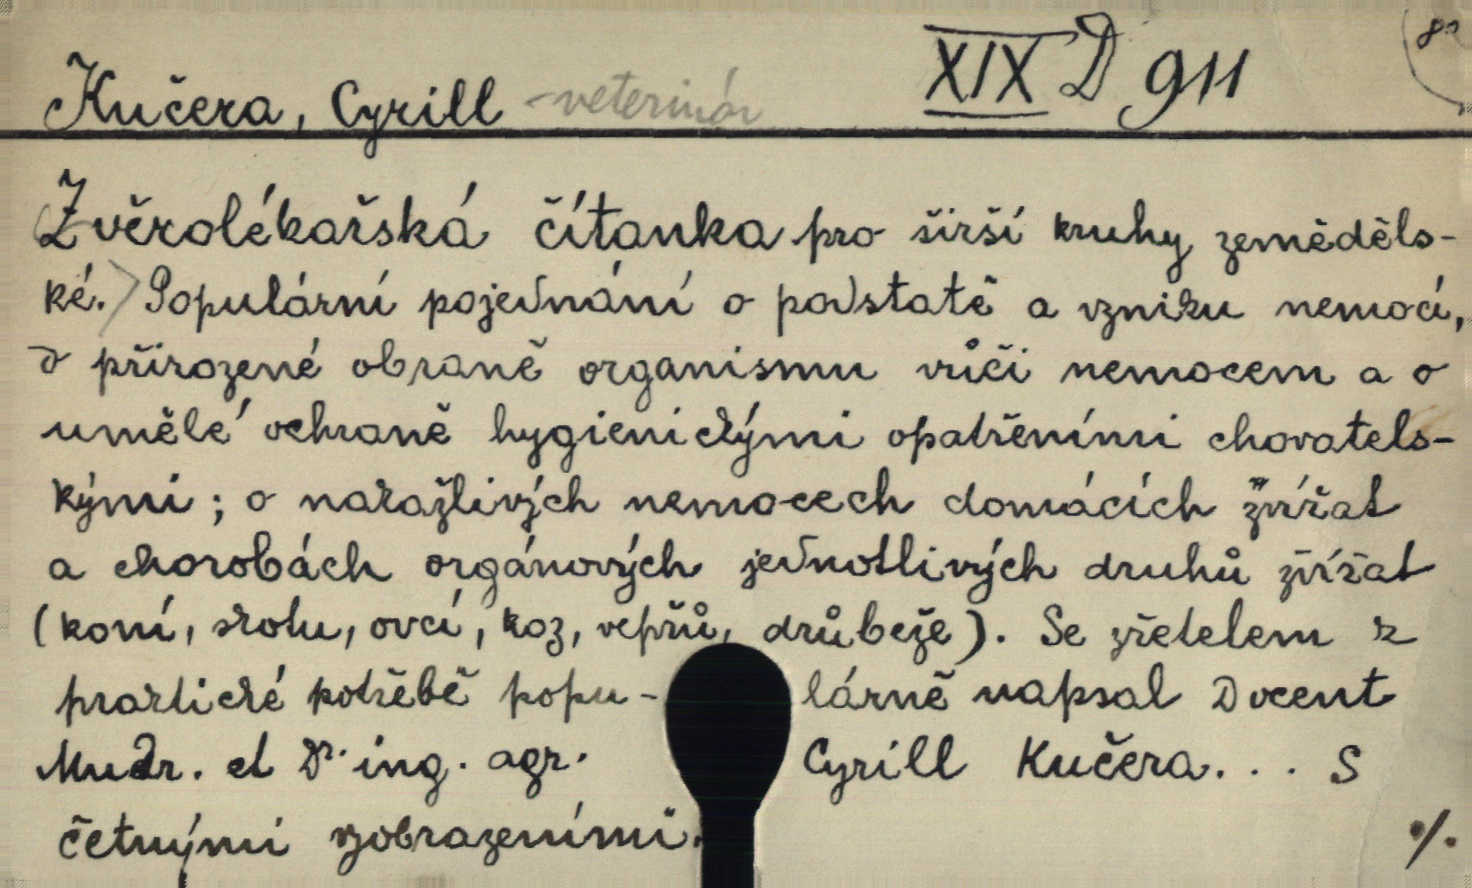 8°
XIX D 911
Kučera, Cyrill - veterinár
Zvěrolékařská čítanka pro širší kruhy zeměděls-
ké. Populární pojednání o podstatě a vzniku nemocí,
o přirozené obraně organismu vůči nemocem a o
umělé ochraně hygienickými opatřeními chovatels-
kými; o nakažlivých nemocech domácích zvířat
a chorobách orgánových jednotlivých druhů zvířat
(koní, skotu, ovcí, koz, vepřů, drůbeže). Se zřetelem k
praktické potřebě popu- lárně napsal Docent
Mudr. et Dr. ing. agr. Cyrill Kučera... S
četnými vyobrazeními.
./.